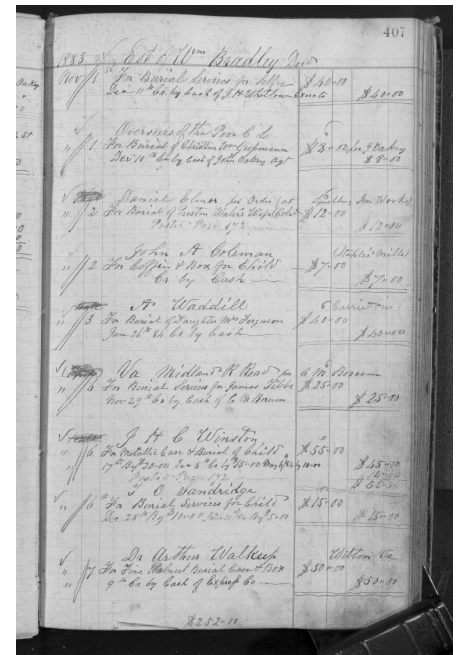 407
1883 Est of Wm Bradley Decd
Nov 1 For Burial Services for Selfe $40.00
Dec 11th Cr by Cash of J. H. Whitlow Exeutr $40.00
Overseers of the Poor C L
" 1 For Burial of Christian Wm Grossmann $8.00 per J Oakey
Dec 10th Cr by Cash of John Oakey Agt $8.00
Daniel Elmer per Order (at Iron Works)
" 2 For Burial of Preston Wife Cold $12.00
Posted Page 172 $12.00
John A Coleman (Staples Mills)
" 2 For Coffin & Box for Child $7.00
Cr by Cash $7.00
A Waddill Carried
" 3 For Burial of Daughter Mrs Ferguson $40.00
Jan 26th 84 Cr by Cash $40.00
Va Midland R Road per C M Borum
" 4 For Burial Services for James Tibbs $25.00
Nov 29th Cr by Cash of C M Borum $25.00
J H C Winston
" 6 For Metallic Case & Burial of Child $55.00
17th By $20.00 Dec 8th Cr by $15.00 10.00 $45.00
Posted Page 172
O Sandridge
" 6 For Burial Services for Child $15.00
Dec 28th By 10.00 By 5.00 $15.00
Dr Arthur Walkup Wilton Va
" 7 For Fine Walnut Burial Case & Box $50.00
9th Cr by Cash of Express Co $50.00
$252.00